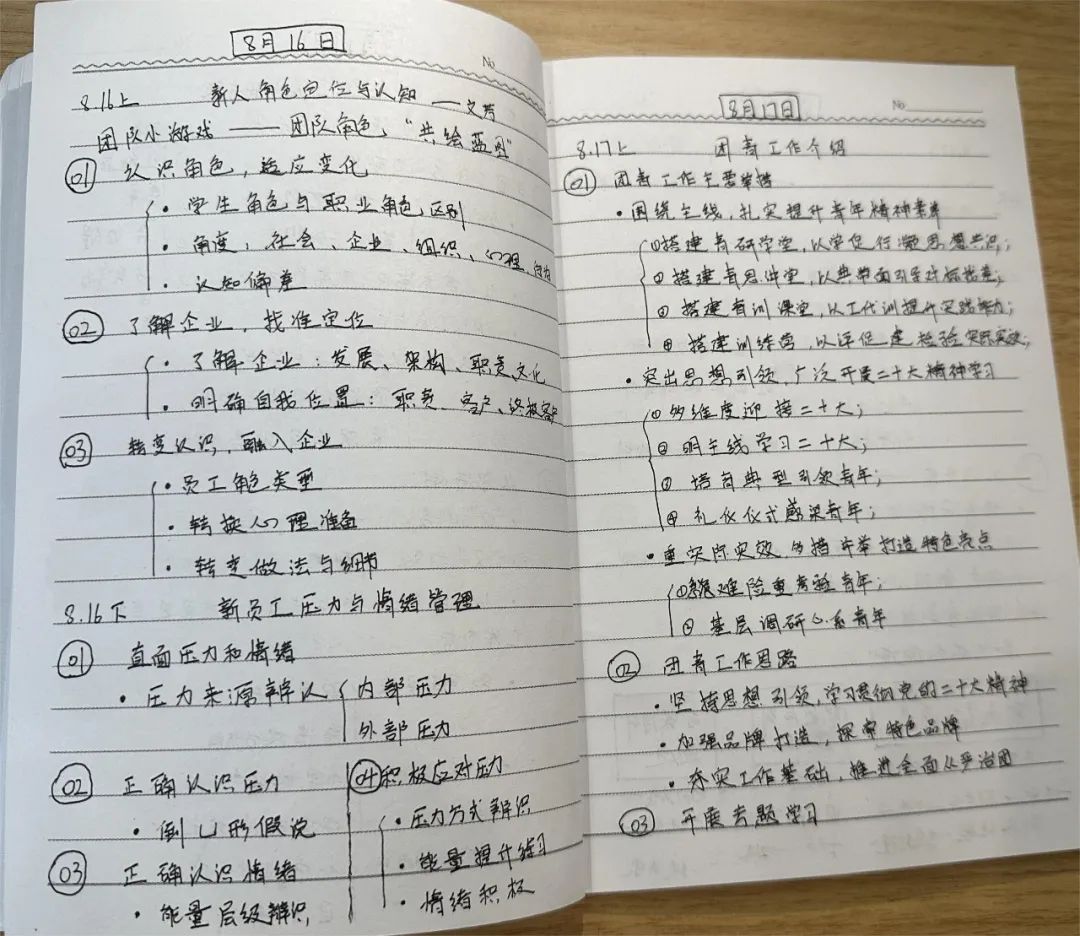 8月16日
No
8.16上 新人角色定位与认知 ——文芳
团队小游戏 —— 团队角色，“共绘蓝图”
01 认识角色，适应变化
· 学生角色与职业角色区别
· 角度，社会、企业、组织、心理、
· 认知偏差
02 了解企业，找准定位
· 了解企业：发展、架构、职责文化
· 明确自我位置：职责、客户、终极客户
03 转变认识，融入企业
· 员工角色类型
· 转换心理准备
· 转变做法与细节
8.16下 新员工压力与情绪管理
01 直面压力和情绪
· 压力来源辨认 内部压力
外部压力
02 正确认识压力
· 倒U形假说
03 正确认识情绪
· 能量层级辨识
04 积极应对压力
· 压力方式辨识
· 能量提升练习
· 情绪积极
8月17日
No
8.17上 团青工作介绍
01 团青工作主要举措
· 围绕主线，扎实提升青年精神素养
① 搭建青研学堂，以学促行凝思想共识；
② 搭建青思讲堂，以典带面引导对标找差；
③ 搭建青训课堂，以工代训提升实践能力；
④ 搭建训练营，以评促建检验实际实效；
· 突出思想引领，广泛开展二十大精神学习
① 多维度迎接二十大；
② 明主线学习二十大；
③ 培育典型引领青年；
④ 礼仪仪式感染青年；
· 重实际实效，多措并举打造特色亮点
① 急难险重考验青年；
② 基层调研心系青年
02 团青工作思路
· 坚持思想引领，学习贯彻党的二十大精神
· 加强品牌打造，探索特色品牌
· 夯实工作基础，推进全面从严治团
03 开展专题学习